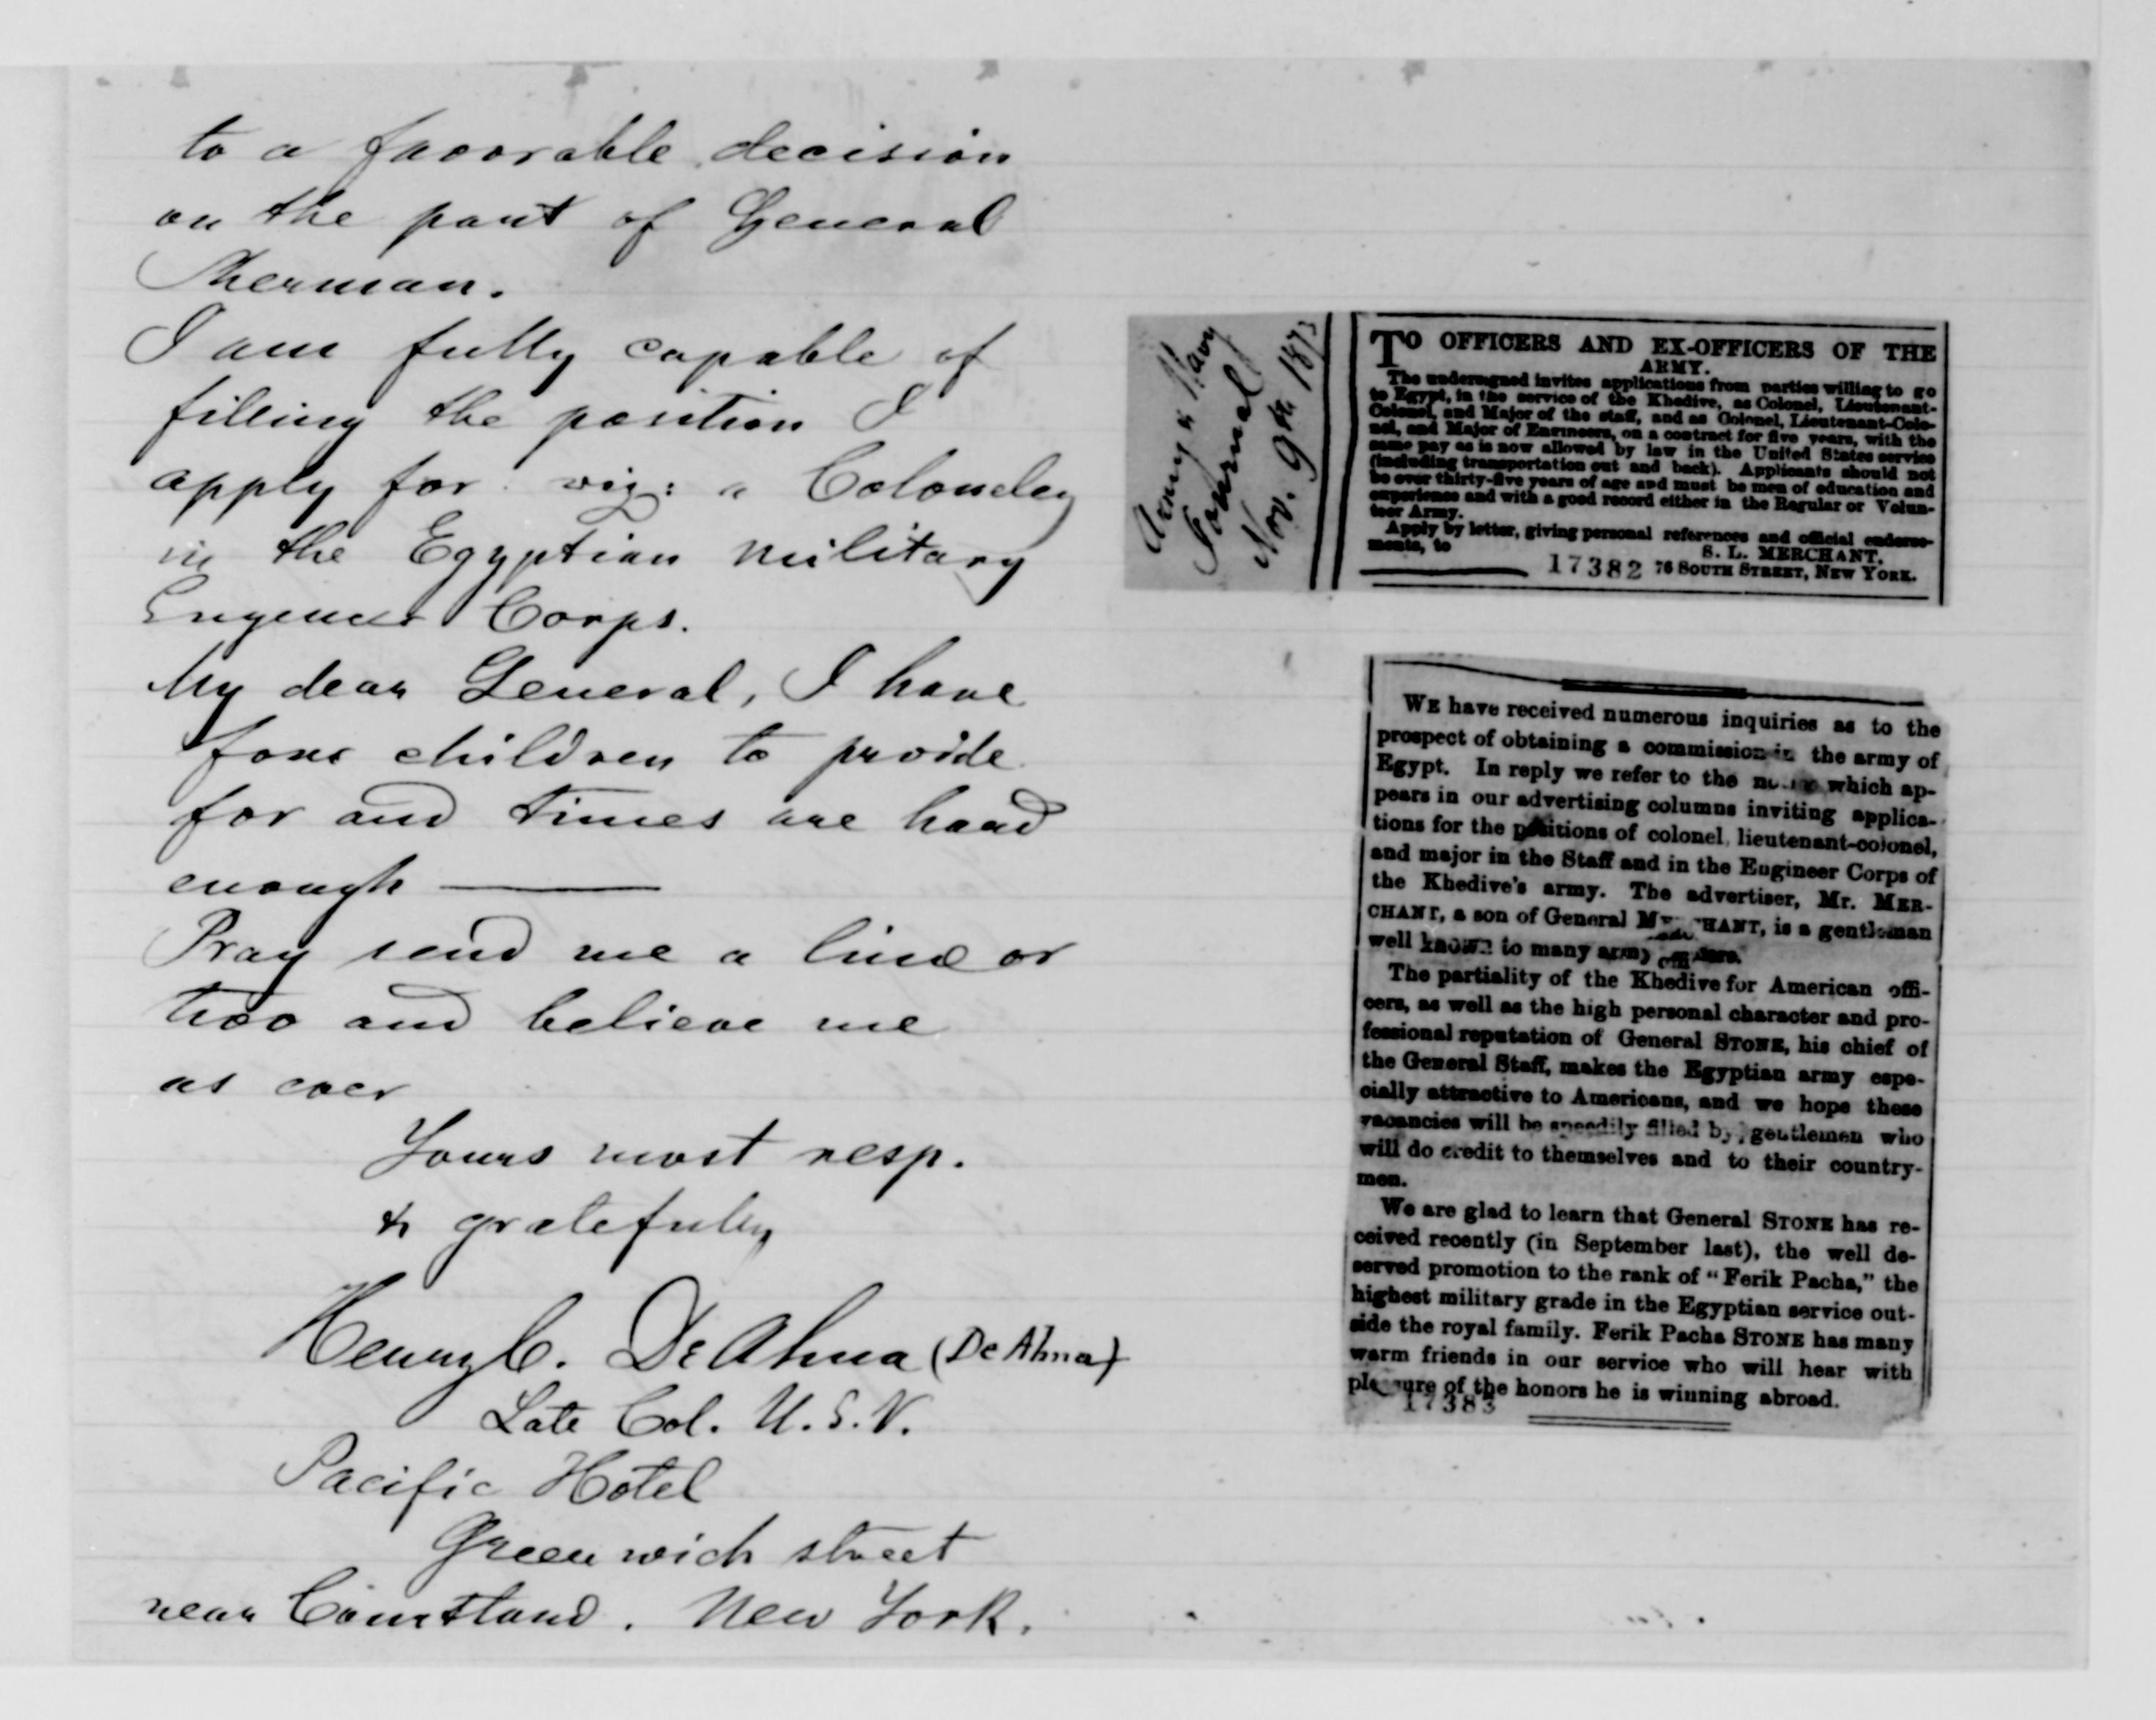 to a favorable decision
on the part of General
Sherman.
I am fully capable of
filling the position I
apply for viz: a Colonelcy
in the Egyptian Military
Engineer Corps.
My dear General, I have
four children to provide
for and times are hard
enough ———
Pray send me a line or
two and believe me
as ever
Yours most resp.
& gratefully
Henry C. De Ahna (De Ahna)
Late Col. U.S.V.
Pacific Hotel
Greenwich street
near Courtland. New York.
Army & Navy
Journal
Nov. 9th 1873
TO OFFICERS AND EX-OFFICERS OF THE
ARMY.
The undersigned invites applications from parties willing to go
to Egypt, in the service of the Khedive, as Colonel, Lieutenant-
Colonel, and Major of the staff, and as Colonel, Lieutenant-Colo-
nel, and Major of Engineers, on a contract for five years, with the
same pay as is now allowed by law in the United States service
(including transportation out and back). Applicants should not
be over thirty-five years of age and must be men of education and
experience and with a good record either in the Regular or Volun-
teer Army.
Apply by letter, giving personal references and official endorse-
ments, to
S. L. MERCHANT.
17382 76 SOUTH STREET, NEW YORK.
WE have received numerous inquiries as to the
prospect of obtaining a commission in the army of
Egypt. In reply we refer to the notice which ap-
pears in our advertising columns inviting applica-
tions for the positions of colonel, lieutenant-colonel,
and major in the Staff and in the Engineer Corps of
the Khedive's army. The advertiser, Mr. MER-
CHANT, a son of General MERCHANT, is a gentleman
well known to many army officers.
The partiality of the Khedive for American offi-
cers, as well as the high personal character and pro-
fessional reputation of General STONE, his chief of
the General Staff, makes the Egyptian army espe-
cially attractive to Americans, and we hope these
vacancies will be speedily filled by gentlemen who
will do credit to themselves and to their country-
men.
We are glad to learn that General STONE has re-
ceived recently (in September last), the well de-
served promotion to the rank of "Ferik Pacha," the
highest military grade in the Egyptian service out-
side the royal family. Ferik Pacha STONE has many
warm friends in our service who will hear with
pleasure of the honors he is winning abroad.
17383